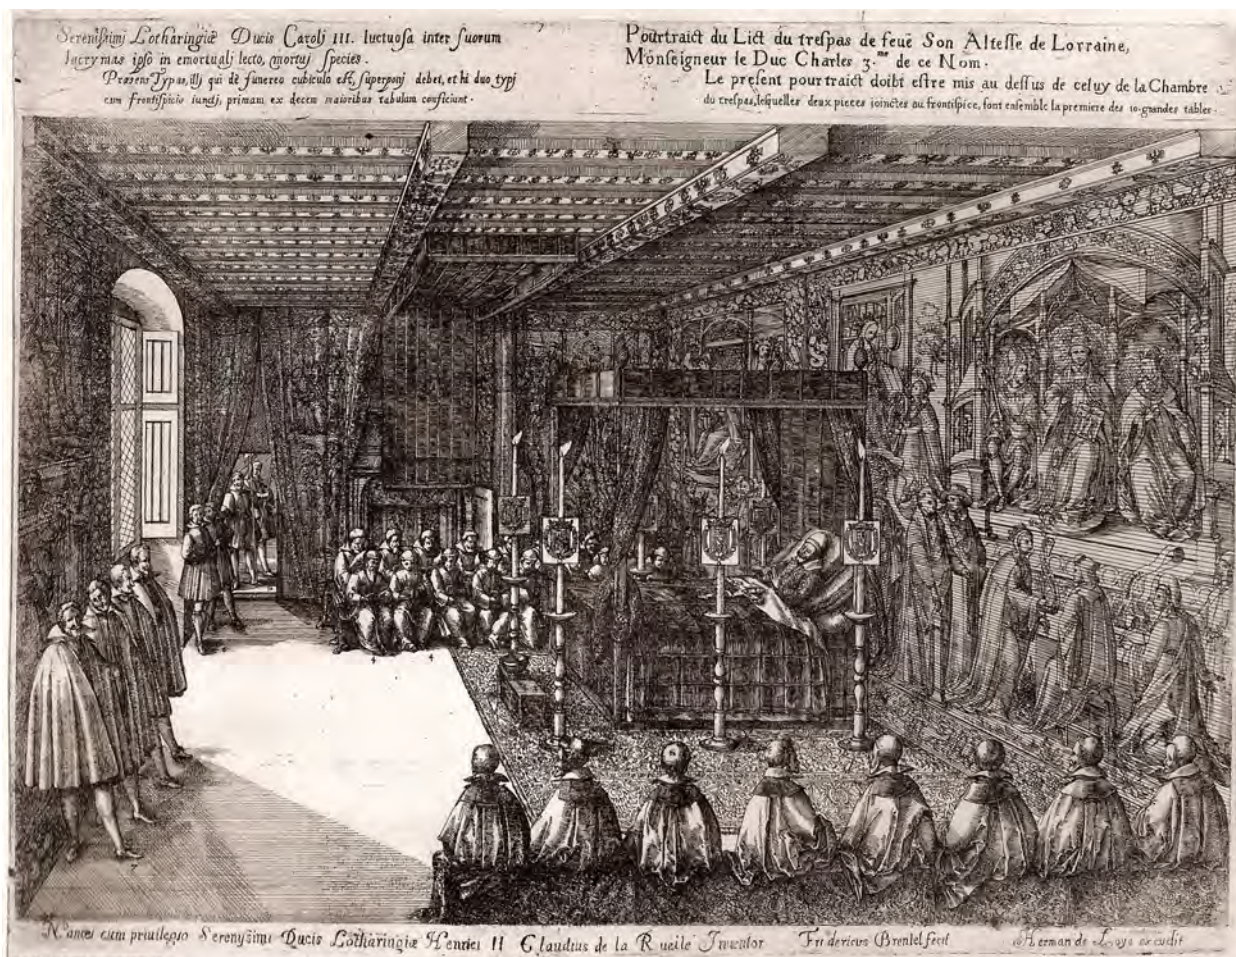 Serenissimj Lotharingiæ Ducis Carolj III. luctuosa inter suorum
lacrymas ipso in emortualj lecto, mortuj species.
Præsens Typus, illj qui de funereo cubiculo est, superponj debet, et hi duo typj
cum frontispicio iunctj, primam ex decem maioribus tabulam conficiunt.
Pourtraict du Lict du trespas de feuë Son Altesse de Lorraine,
Monseigneur le Duc Charles 3.me de ce Nom.
Le present pourtraict doibt estre mis au dessus de celuy de la Chambre
du trespas, lesquelles deux pieces joinctes au frontispice, font ensemble la premiere des 10 grandes tables.
cum priuilegio Serenissimi Ducis Lotharingiæ Henrici II Claudius de la Ruelle Inuentor Fridericus Brentel fecit Herman de Loye excudit